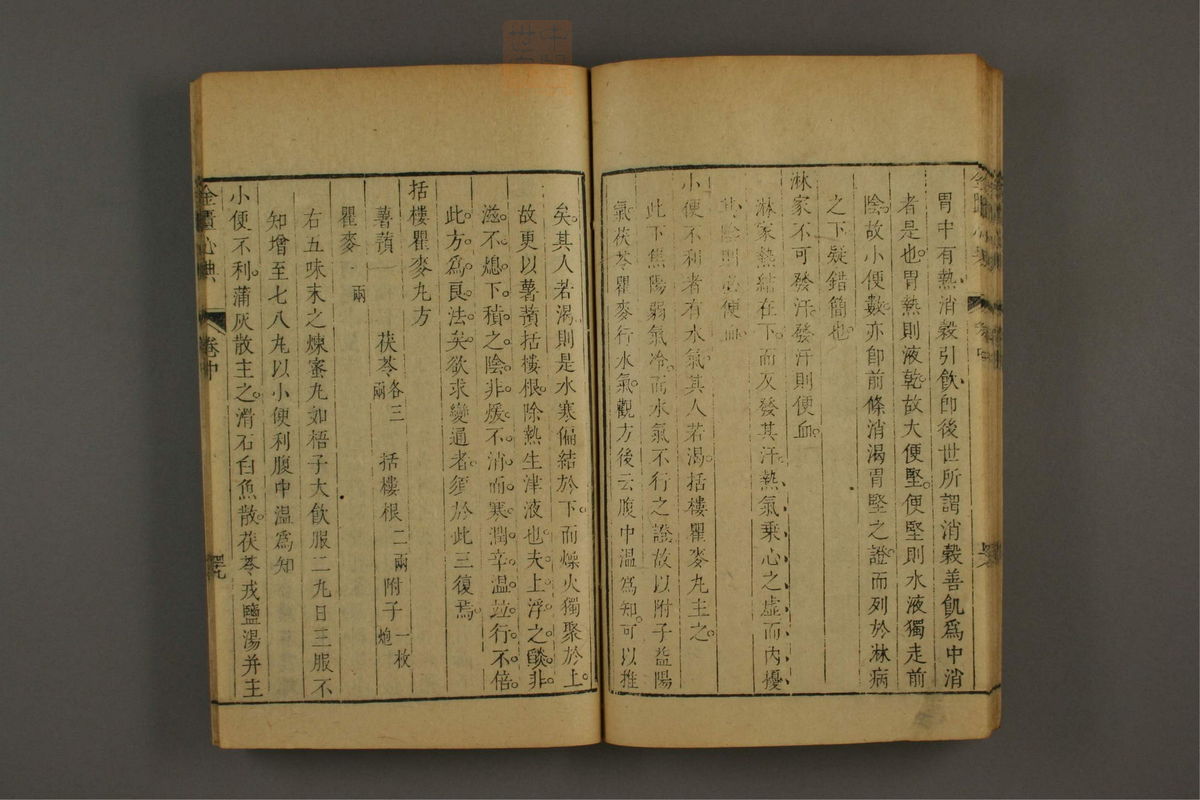 胃中有熱消穀引飲卽後世所謂消穀善飢爲中消
者是也胃熱則液乾故大便堅便堅則水液獨走前
陰故小便數亦卽前條消渴胃堅之證而列於淋病
之下疑錯簡也
淋家不可發汗發汗則便血
淋家熱結在下而反發其汗熱氣乘心之虛而內擾
其陰則必便血
小便不利者有水氣其人若渴括樓瞿麥丸主之
此下焦陽弱氣冷而水氣不行之證故以附子益陽
氣茯苓瞿麥行水氣觀方後云腹中溫爲知可以推
矣其人若渴則是水寒偏結於下而燥火獨聚於上
故更以薯蕷括樓根除熱生津液也夫上浮之燄非
滋不熄下積之陰非煖不消而寒潤辛溫並行不倍
此方爲良法矣欲求變通者須於此三復焉
括樓瞿麥丸方
薯蕷 茯苓各三兩 括樓根二兩 附子一枚炮
瞿麥一兩
右五味末之煉蜜丸如梧子大飲服二丸日三服不
知增至七八丸以小便利腹中溫爲知
小便不利蒲灰散主之滑石白魚散茯苓戎鹽湯并主
金匱心典 卷中